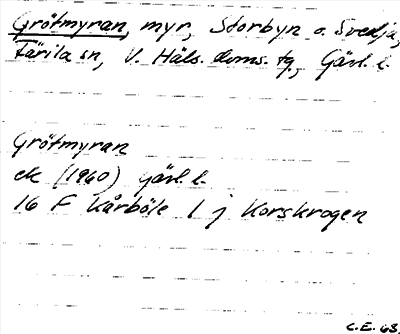 Grötmyran, myr, Storbyn o. Svedja,
Färila sn, V. Häls. doms. tg, Gävl. l.
Grötmyran
ek (1960) Gävl. l.
16 F Kårböle 1 j Korskrogen
C.E. 63.